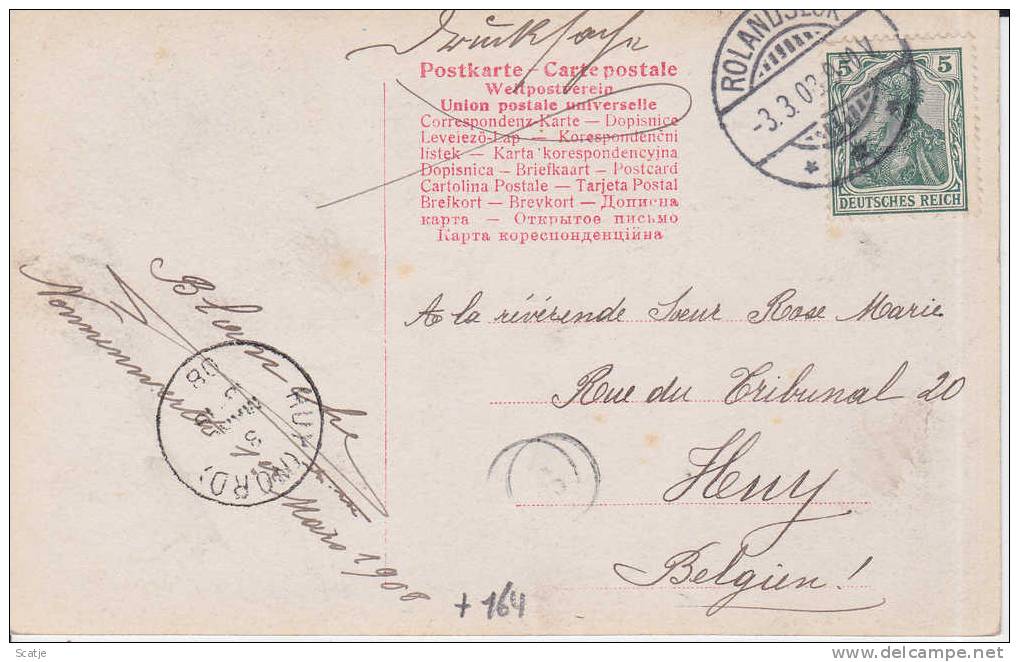 Drucksache
Postkarte – Carte postale
Weltpostverein
Union postale universelle
Correspondenz-Karte — Dopisnice
Levelező-Lap — Korespondenční
listek — Karta korespondencyjna
Dopisnica — Briefkaart — Postcard
Cartolina Postale — Tarjeta Postal
Brefkort — Brevkort — Дописна
карта — Открытое письмо
Карта кореспонденційна
ROLANDSECK
-3.3.08
5 5
DEUTSCHES REICH
A la révérende Sœur Rose Marie
Rue du Tribunal 20
Huy
Belgien!
Nonnenwerth
Mars 1908
HUY (NORD)
08
+ 164
Scatje
www.delcampe.net